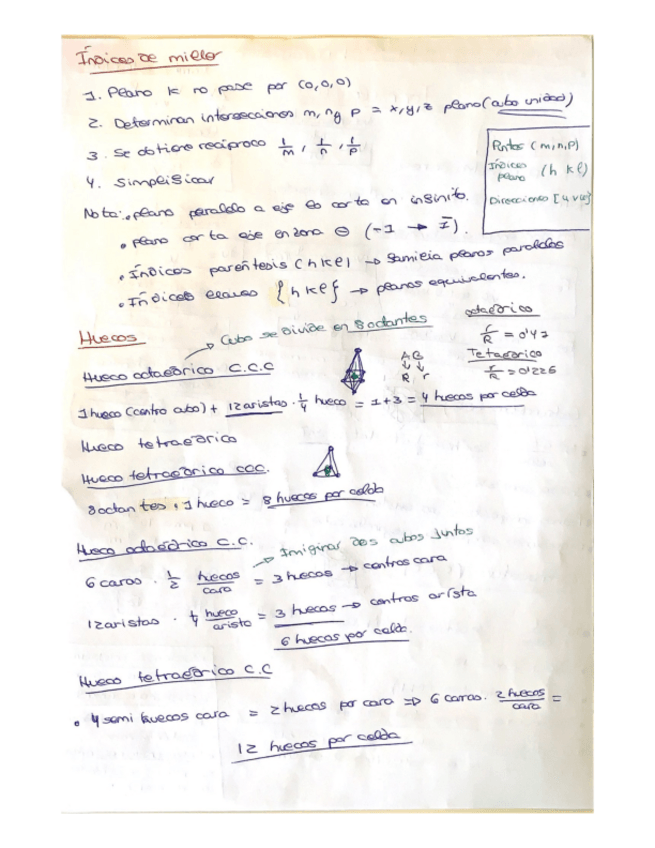 Índices de miller
1. Plano k no pase por (0,0,0)
2. Determinan intersecciones m, n y p = x/y/z plano (cubo unidad)
3. Se obtiene reciproco 1/m, 1/n, 1/p
4. Simplificar
Puntos (m,n,p)
Índices plano (h k l)
Direcciones [u v w]
Nota: • plano paralelo a eje lo corta en infinito.
• plano corta eje en zona ⊖ (-1 → 1̄).
• Índices paréntesis (h k l) → familia planos paralelos
• Índices llaves {h k l} → planos equivalentes.
Huecos
→ Cubo se divide en 8 octantes
octaédrico
r/R = 0'41
Tetraédrico
r/R = 0'225
Hueco octaédrico C.C.C
A B
↓ ↓
R r
1 hueco (centro cubo) + 12 aristas · 1/4 hueco = 1+3 = 4 huecos por celda
Hueco tetraédrico
Hueco tetraédrico CCC.
8 octantes · 1 hueco = 8 huecos por celda
Hueco octaédrico C.C.
→ Imiginar dos cubos juntos
6 caras · 1/2 huecos/cara = 3 huecos → centros cara
12 aristas · 1/4 hueco/arista = 3 huecos → centros arista
6 huecos por celda.
Hueco tetraédrico C.C
• 4 semi huecos cara = 2 huecos por cara ⇒ 6 caras · 2 huecos/cara =
12 huecos por celda